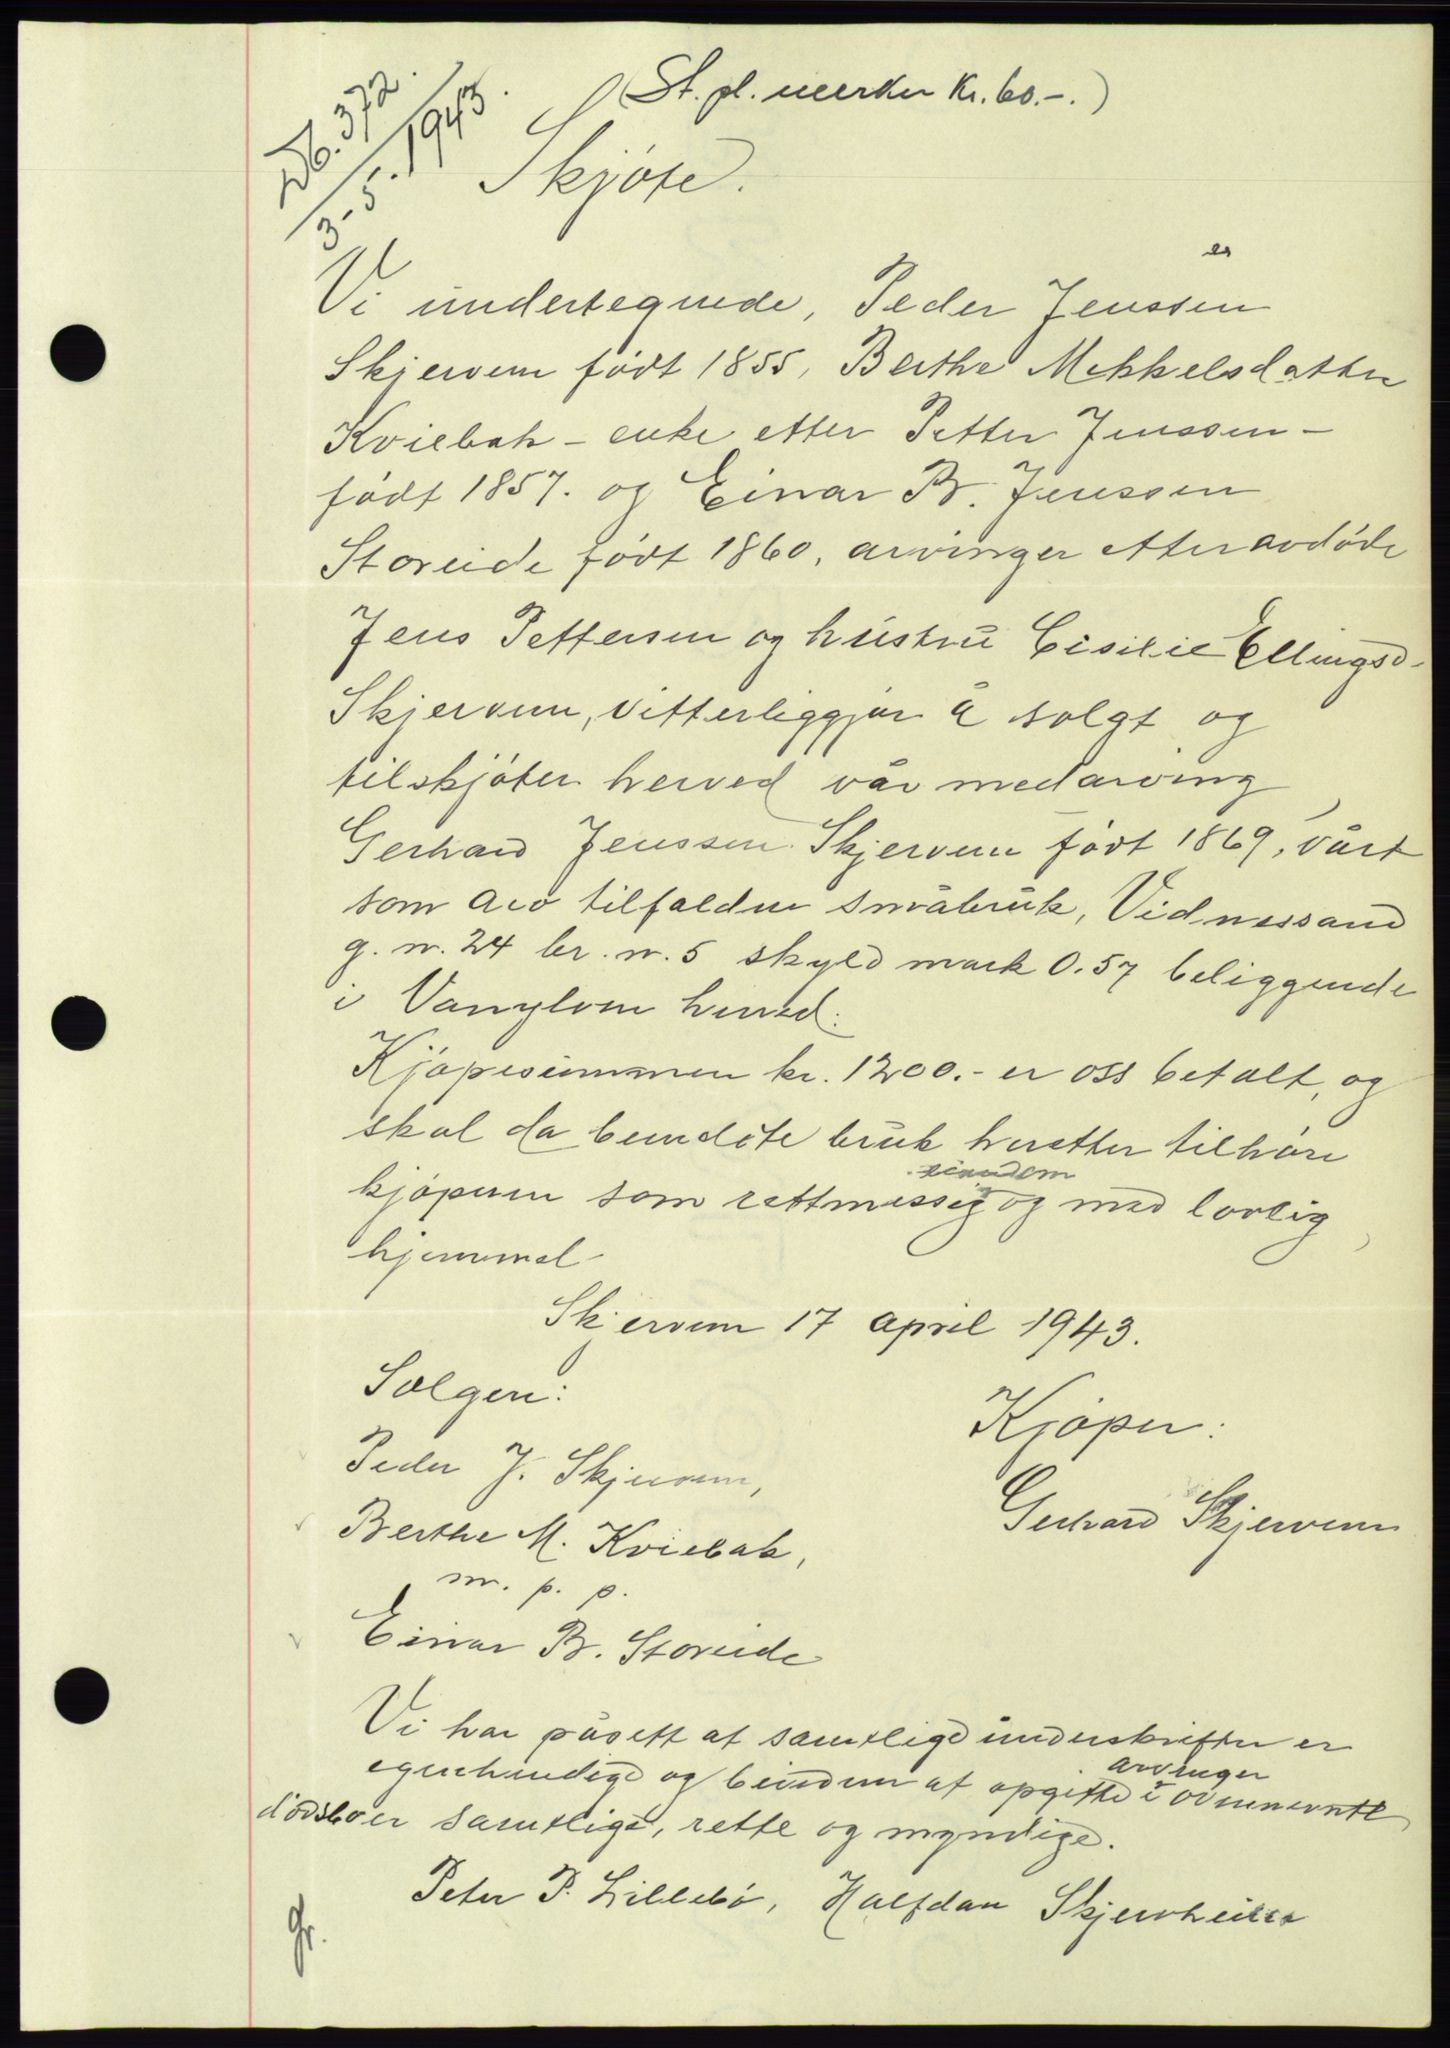 (St. pl. merker Kr. 60.-.)
Db. 372.
3-5. 1943.
Skjøte.
Vi undertegnede, Peder Jenssen
Skjervem født 1855, Berthe Mekkelsdatter
Kviebak - enke etter Petter Jenssen -
født 1857. og Einar B. Jenssen
Storeide født 1860, arvinger etter avdøde
Jens Pettersen og hustru Cisilie Ellingsd.
Skjervem, vitterliggjør å solgt og
tilskjøter herved vår medarving
Gerhard Jenssen Skjervem født 1869, vårt
som arv tilfaldne småbruk, Vidnessand
g. n. 24 br. n. 5 skyld mark 0.57 beliggende
i Vanylven herred.
Kjøpesummen kr. 1200.- er oss betalt, og
skal da bemelte bruk heretter tilhøre
eiendom
kjøperen som rettmessig og med lovlig
hjemmel.
Skjervem 17 april 1943.
Sælgere:
Kjøper:
Peder J. Skjervem,
Gerhard Skjervem
Berthe M. Kviebak,
m. p. p.
Einar B. Storeide
Vi har påsett at samtlige underskrifter er
arvinger
egenhendige og at opgitte i ovennevnte
dødsbo er samtlige, rette og myndige.
Peter P. Lillebø, Halfdan Skjervheim
Gr.